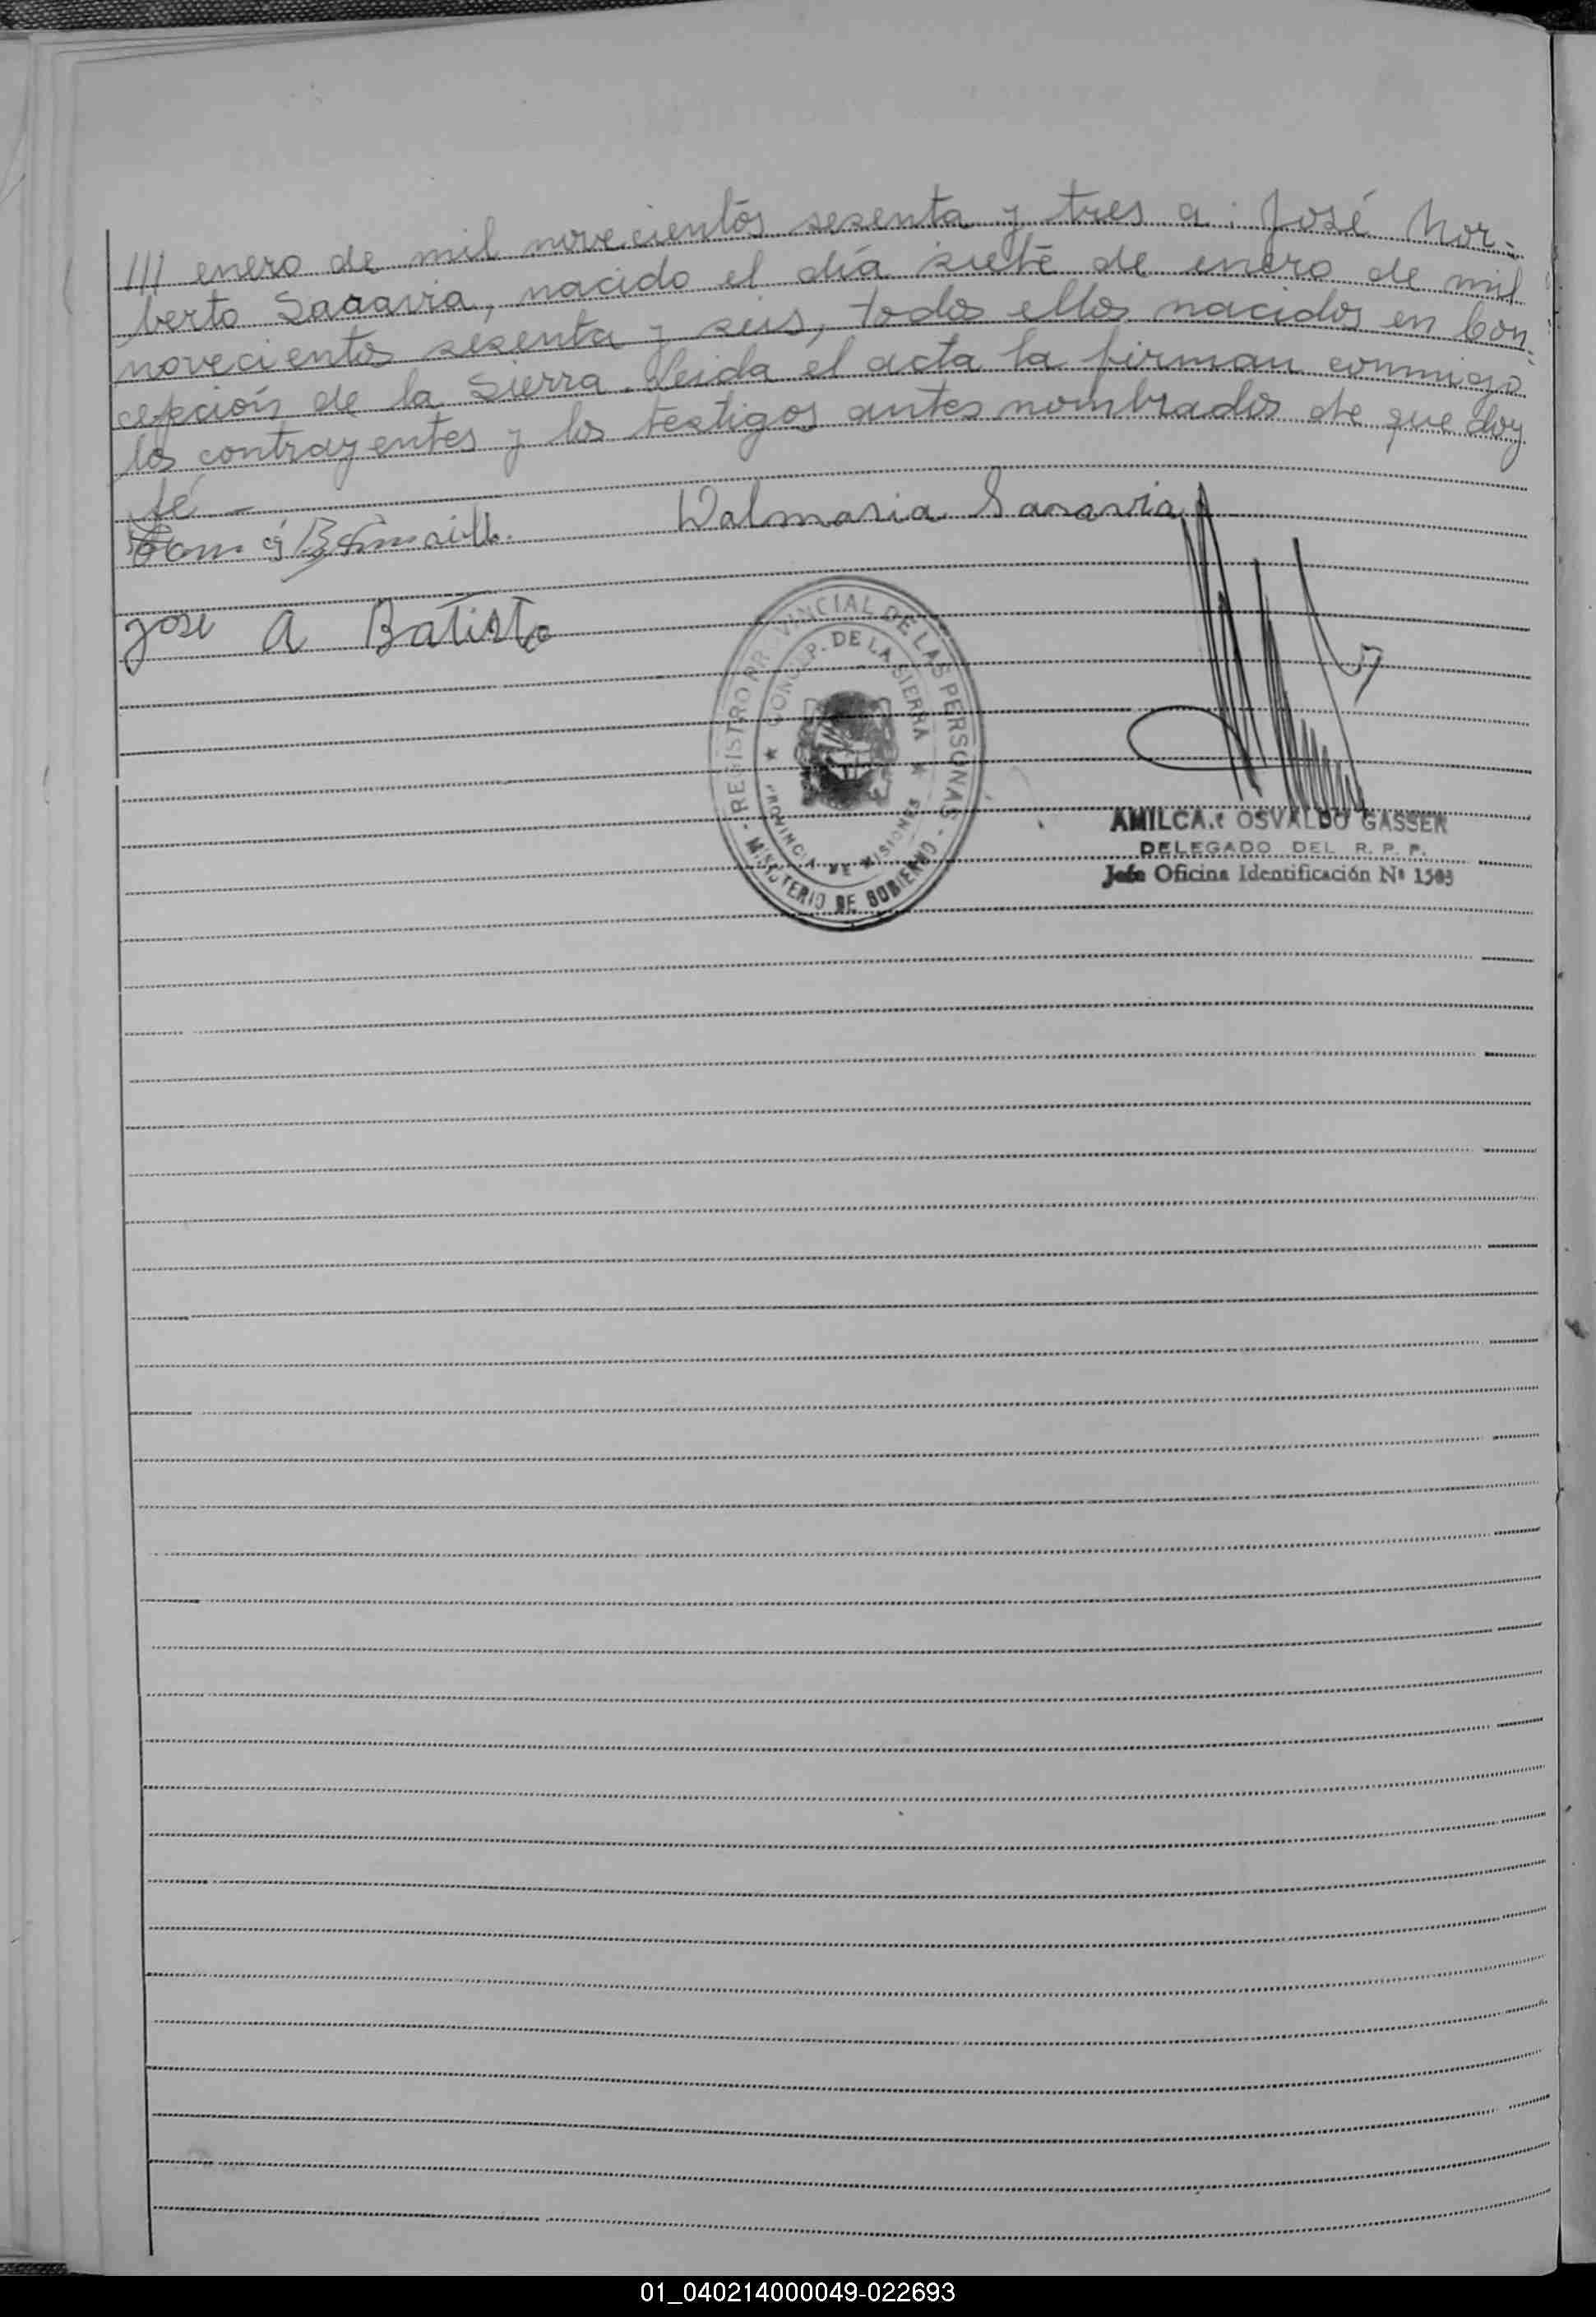 /// enero de mil novecientos sesenta y tres a: José Nor-
berto Saravia, nacido el día siete de enero de mil
novecientos sesenta y seis, todos ellos nacidos en Con-
cepción de la Sierra. Leida el acta la firman conmigo
los contrayentes y los testigos antes nombrados de que doy
fé -
Walmaria Saravia
José A Batista
REGISTRO PROVINCIAL DE LAS PERSONAS
CONCEP. DE LA SIERRA
PROVINCIA DE MISIONES
- MINISTERIO DE GOBIERNO -
AMILCAR OSVALDO GASSER
DELEGADO DEL R. P. P.
Jefe Oficina Identificación Nº 1503
01_040214000049-022693